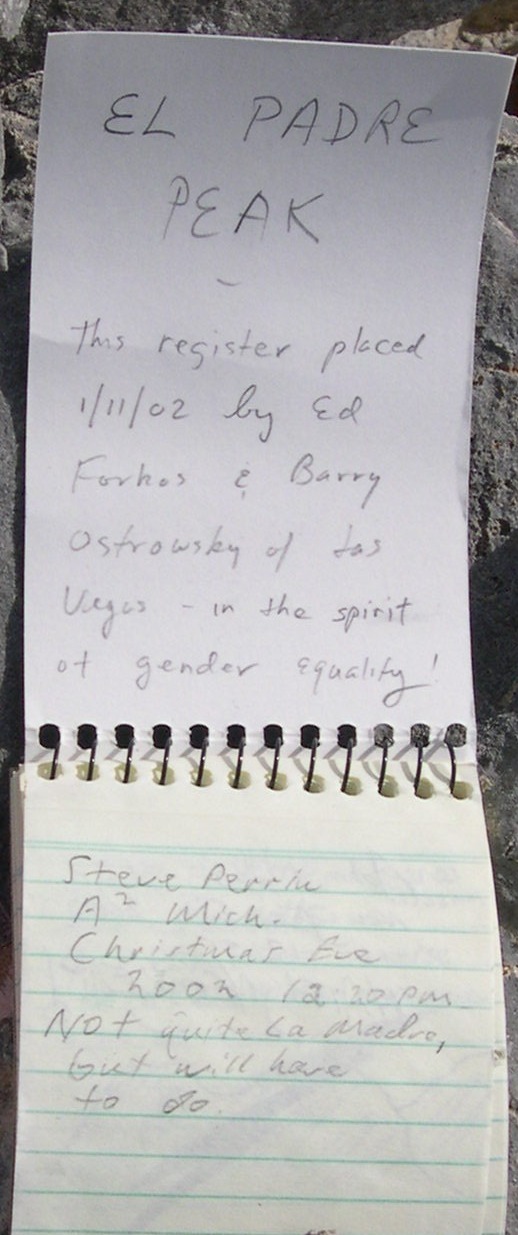 EL PADRE
PEAK
-
This register placed
1/11/02 by Ed
Forkos & Barry
Ostrowsky of Las
Vegas - in the spirit
of gender equality!
Steve Perrin
A² Mich.
Christmas Eve
2002 12:20 PM
Not quite La Madre,
but will have
to do.